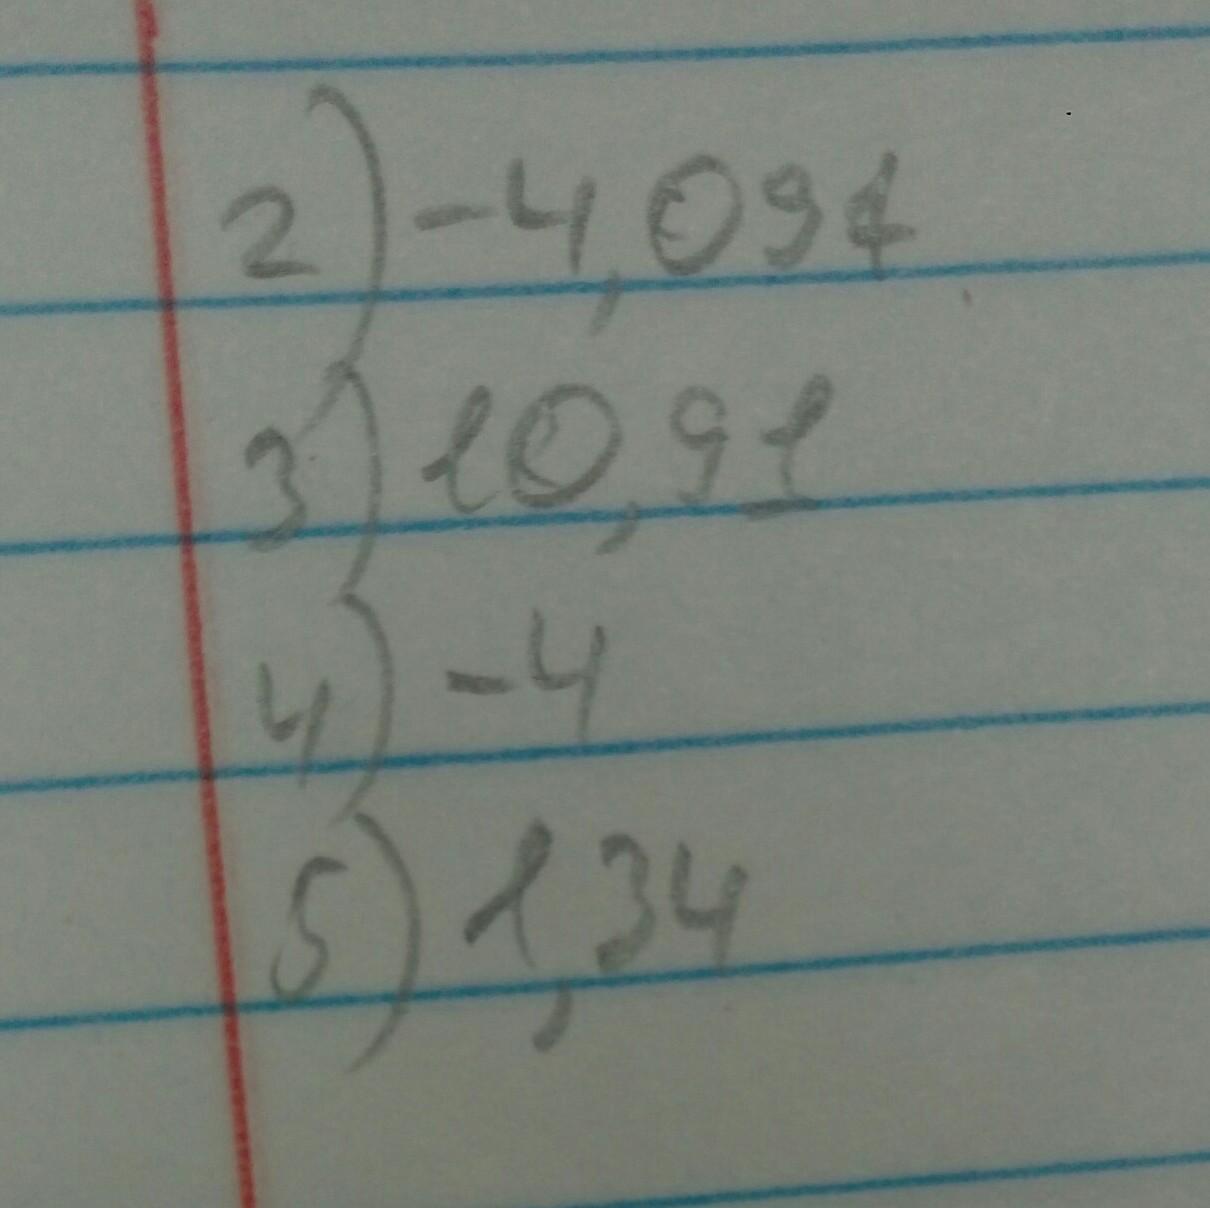 2) -4,091
3) 10,91
4) -4
5) 1,34